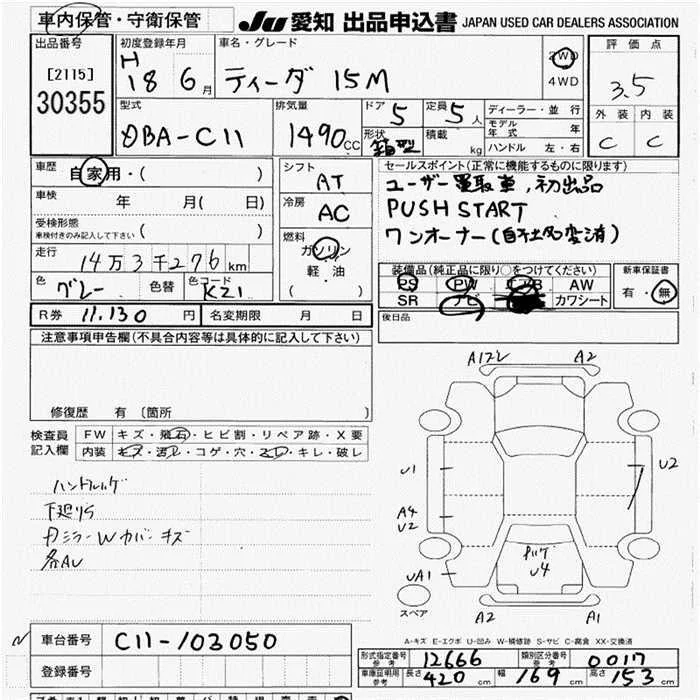 車内保管・守衛保管
JU 愛知 出品申込書 JAPAN USED CAR DEALERS ASSOCIATION
出品番号
[2115]
30355
初度登録年月
H
18 6月
車名・グレード
ティーダ 15M
2WD
4WD
評価点
3.5
外装 内装
C C
型式
DBA-C11
排気量
1490CC
ドア 5
形状 箱型
定員 5人
積載 kg
ディーラー・並行
モデル年式 年
ハンドル 左・右
車歴
自家用・( )
車検 年 月( 日)
受検形態
車検付きのみ記入して下さい ( )
走行
14万3千276km
色 グレー 色替 色コード KZ1
R券 11,130円 名変期限 月 日
シフト
AT
冷房
AC
燃料
ガソリン
軽油
( )
セールスポイント(正常に機能するものに限ります)
ユーザー買取車,初出品
PUSH START
ワンオーナー(自社名変済)
装備品(純正品に限り○をつけてください)
PS PW AW
SR ナビ カワシート
新車保証書
有・無
後日品
注意事項申告欄(不具合内容等は具体的に記入して下さい)
修復歴 有 [箇所 ]
検査員記入欄
FW キズ・飛石・ヒビ割・リペア跡・X要
内装 キズ・汚れ・コゲ・穴・スレ・キレ・破レ
下廻りS
ミラーWカバーキズ
各AU
A1 A2
U1 U2
A4
U2
U4
UA1
スペア
A2 A1
A-キズ E-エクボ U-凹み W-補修跡 S-サビ C-腐食 XX-交換済
車台番号 C11-103050
登録番号
形式指定番号 参考 12666 類別区分番号 参考 0017
車庫証明用 参考 長さ 420cm 幅 169cm 高さ 153cm